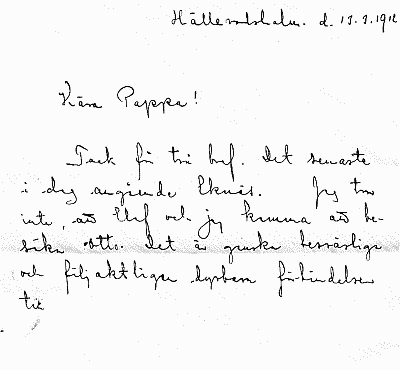 d. 13.3.1912
Kära Pappa!
Tack för två bref. Det senaste
i dag angående Eknäs. Jag tror
inte, att Elof och jag komma att be-
söka Otto. Det är ganska besvärliga
och följaktligen dyrbara förbindelser
till